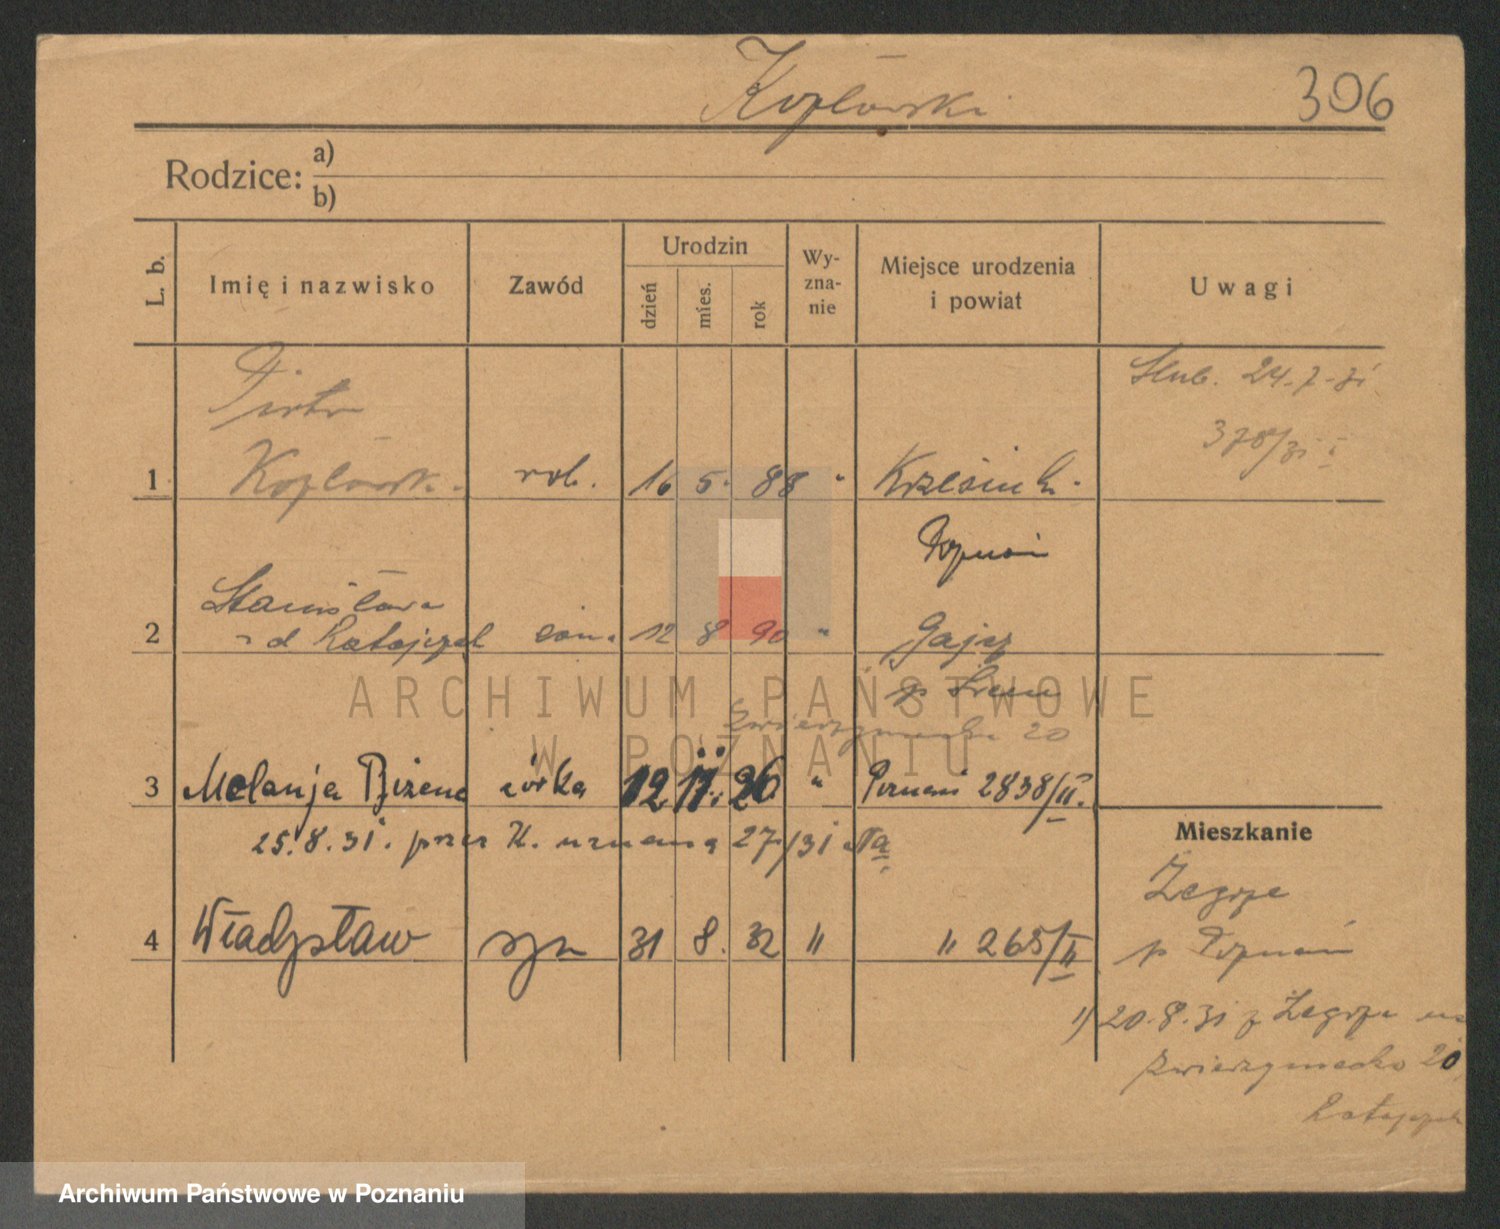 Kozłowski
306
Rodzice:
a)
b)
L. b.
Imię i nazwisko
Zawód
Urodzin
dzień
mies.
rok
Wy-
zna-
nie
Miejsce urodzenia
i powiat
Uwagi
Piotr
Ślub. 24-7-31
378/31 I
1 Kozłowski rob. 16 5. 88 "
Poznań
Stanisława
2 z d Ratajczak 12 8 90 " Gaj
p Śrem
Zwierzyniecka 20
3 Melanja Bożena córka 12 11. 26 " Poznań 2838/II.
25.8.31. przez K. uznana 27/31
4 Władysław syn 31 8. 32 " " 265/II
Mieszkanie
Żegrze
p Poznań
1) 20.8.31 z Żegrze na
Zwierzyniecka 20
Ratajczak
ARCHIWUM PAŃSTWOWE
W POZNANIU
Archiwum Państwowe w Poznaniu